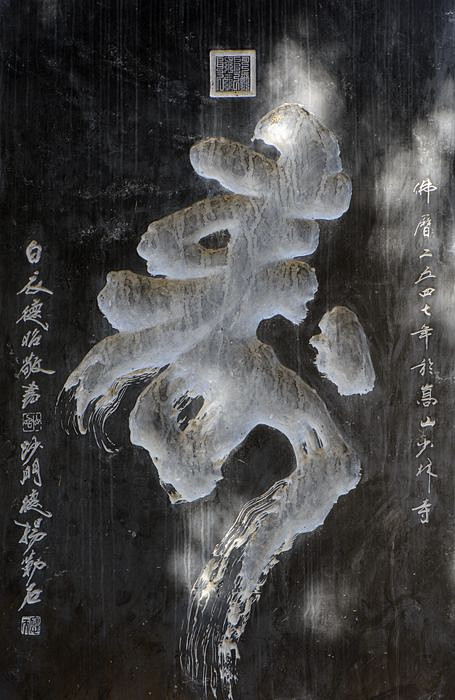 佛曆二五四七年於嵩山少林寺
寿
白衣德昭敬書 沙門德揚勒石